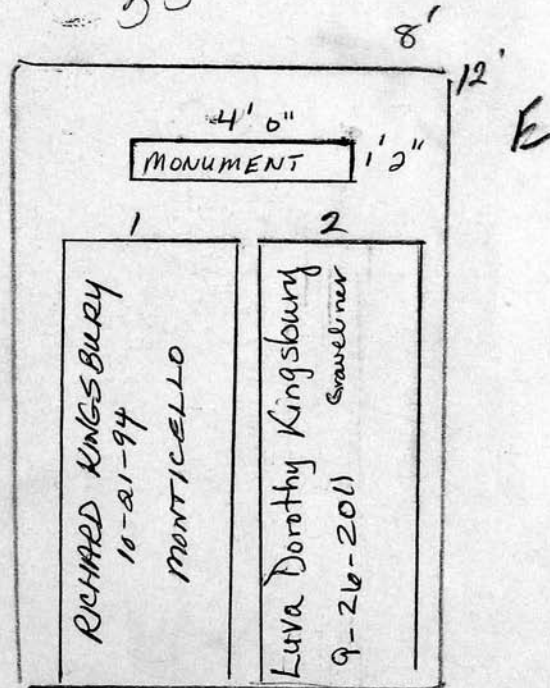 8'
12'
E
4' 0"
MONUMENT
1' 2"
1
2
RICHARD KINGSBURY
10-21-94
MONTICELLO
Luva Dorothy Kingsbury
Graveliner
9-26-2011